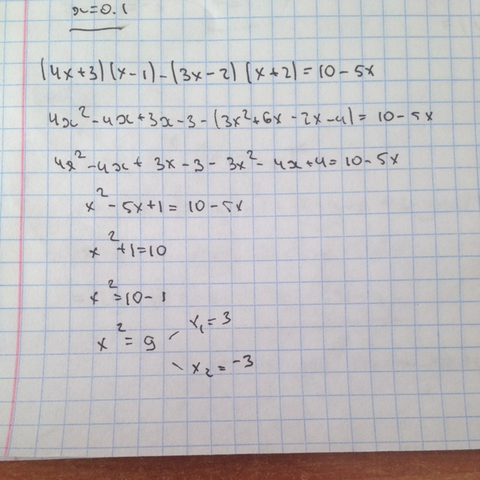 x=0.1
(4x+3)(x-1)-(3x-2)(x+2)=10-5x
4x²-4x+3x-3-(3x²+6x-2x-4)=10-5x
4x²-4x+3x-3-3x²-4x+4=10-5x
x²-5x+1=10-5x
x²+1=10
x²=10-1
x²=9
x₁=3
x₂=-3